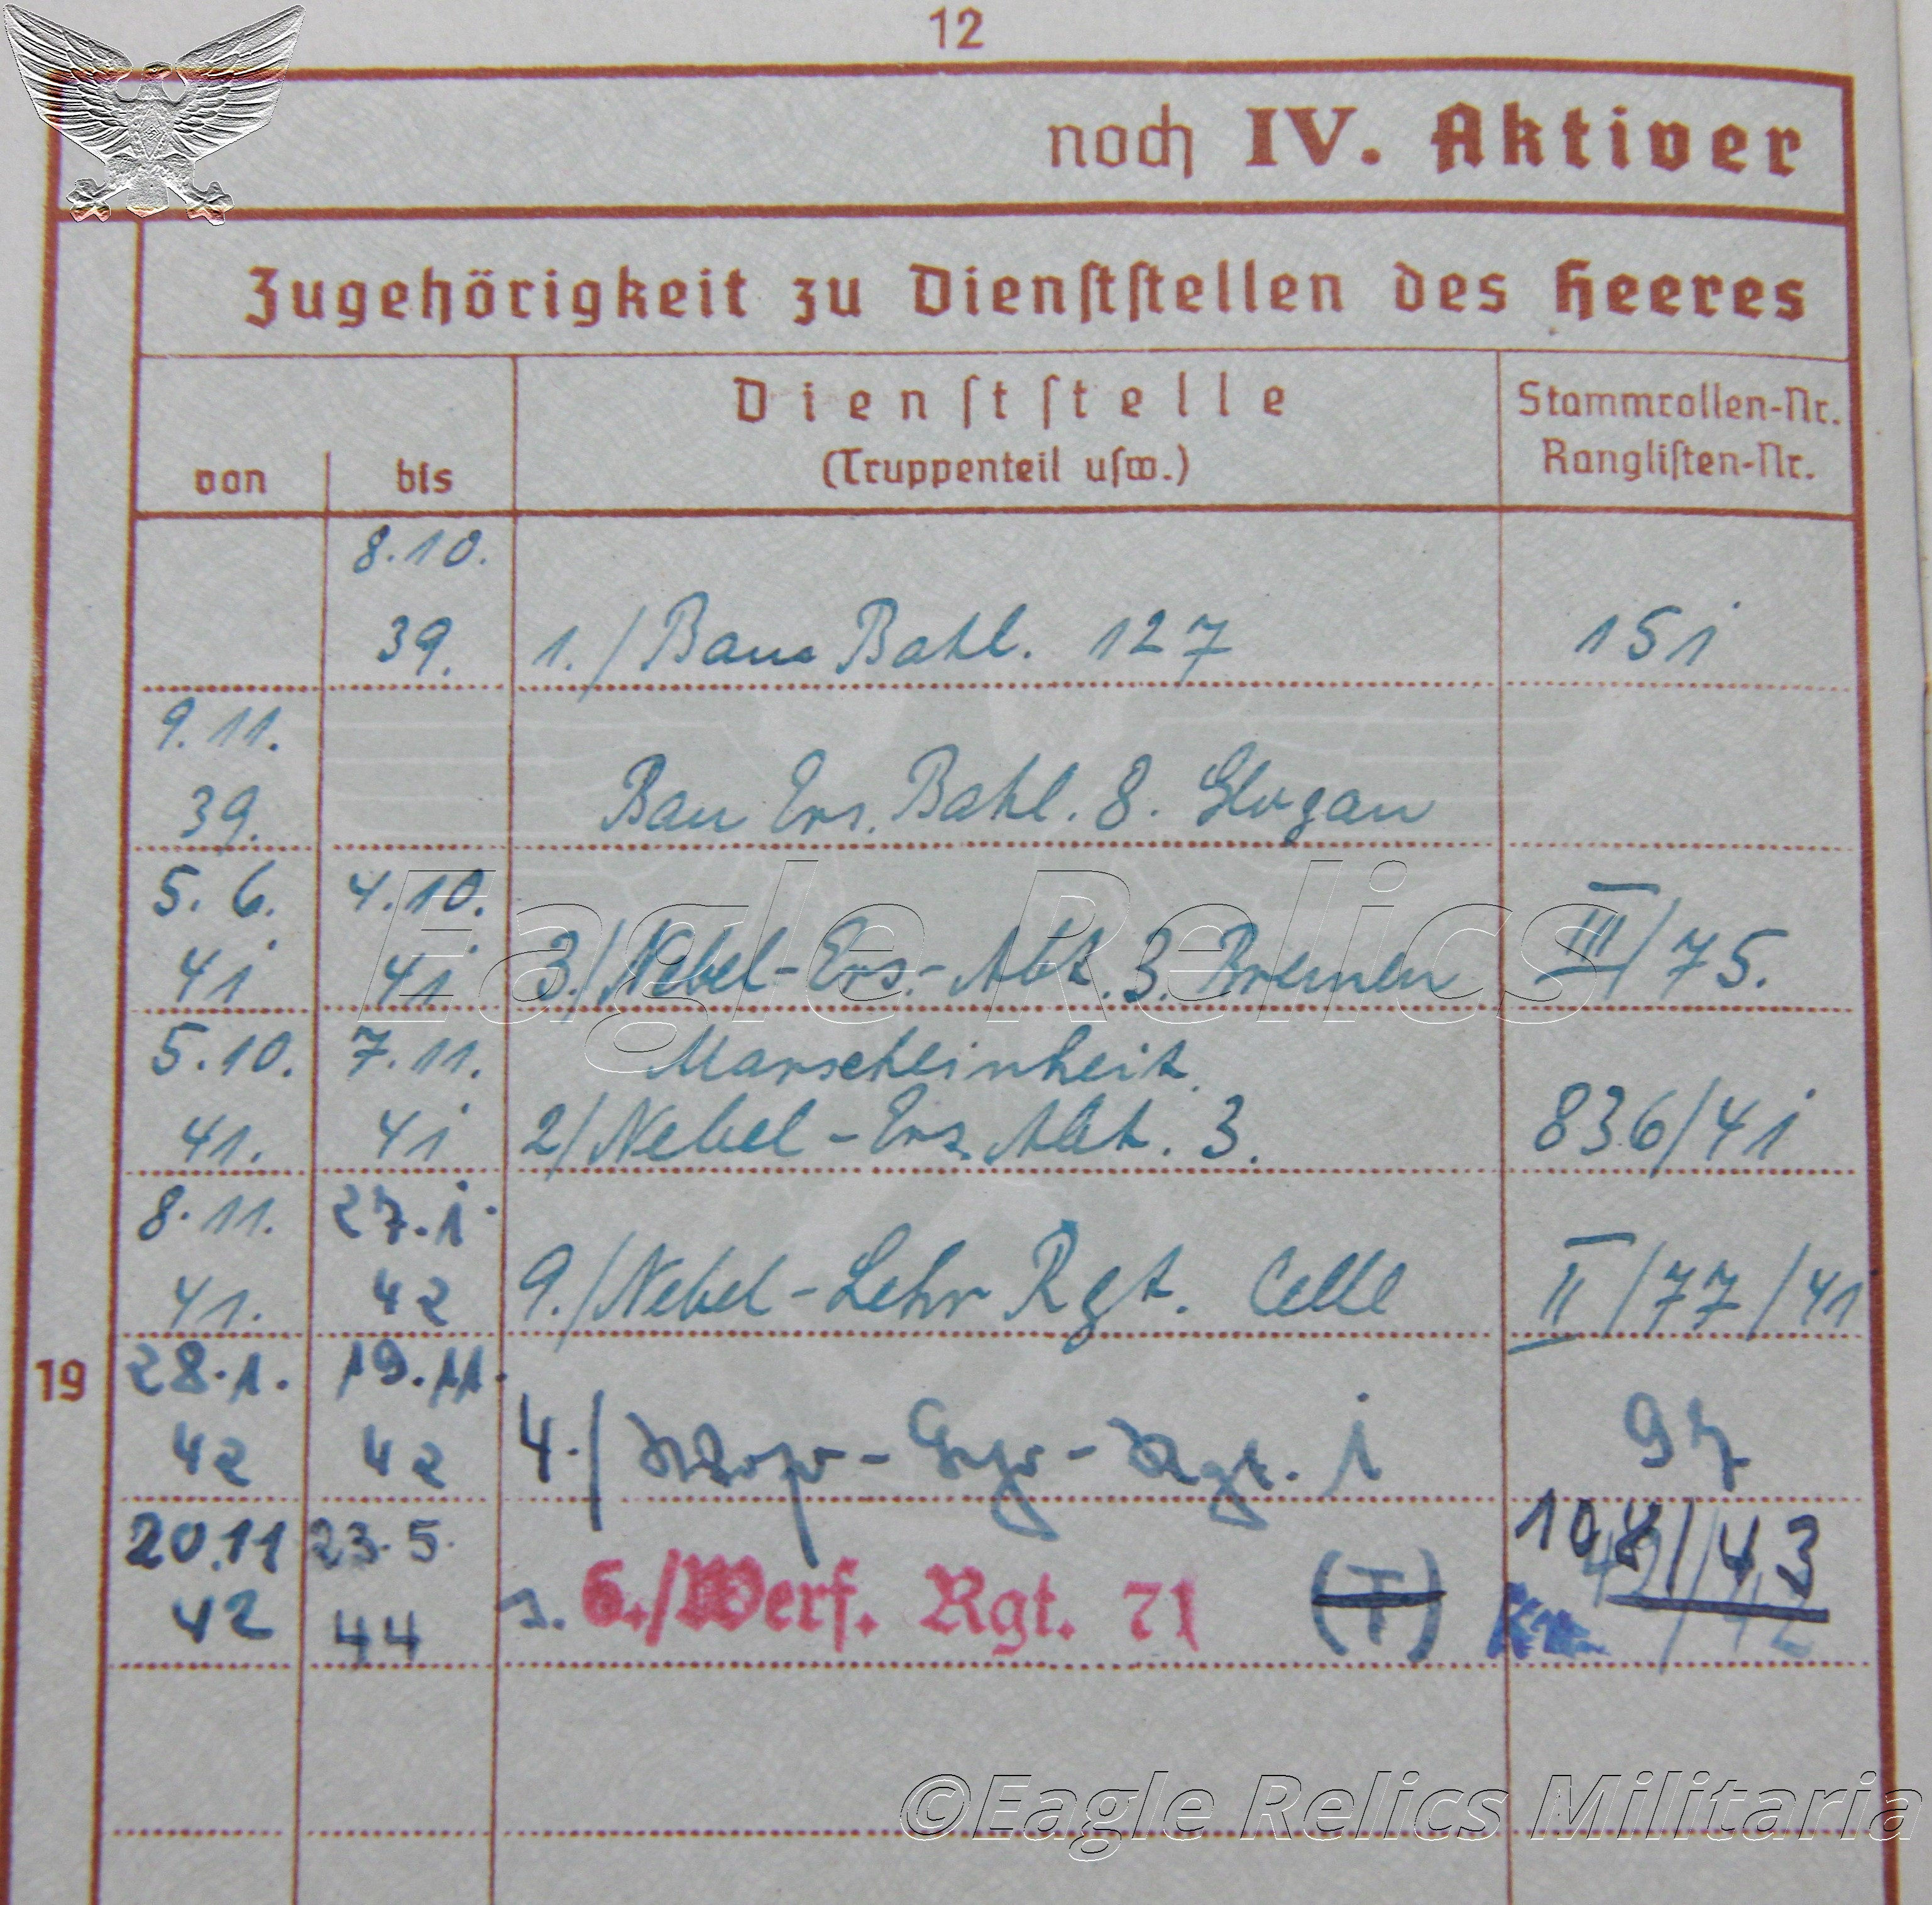 12
noch IV. Aktiver
Zugehörigkeit zu Dienststellen des Heeres
Dienststelle
(Truppenteil usw.)
Stammrollen-Nr.
Ranglisten-Nr.
von bis
8.10.
39. 1./Bau Batl. 127 151
9.11.
39. Bau Ers. Batl. 8. Glogau
5.6. 4.10.
41 41 3./Nebel-Ers.-Abt. 3. Bremen III/75.
5.10. 7.11. Marscheinheit
41. 41 2/Nebel-Ers. Abt. 3. 836/41
8.11. 27.1.
41. 42 9./Nebel-Lehr Rgt. Celle II/77/41
19 28.1. 19.11.
42 42 4./ Rgt. 1 97
20.11 23.5. 108/43
42 44 6./Werf. Rgt. 71 (T)
Eagle Relics
©Eagle Relics Militaria